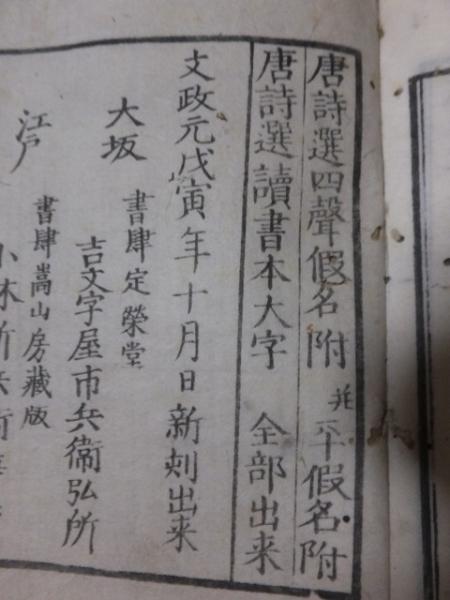 唐詩選四聲假名附 并平假名附
唐詩選讀書本大字 全部出来
文政元戊寅年十月日新刻出来
大坂 書肆定榮堂
吉文字屋市兵衞弘所
江戸 書肆嵩山房藏版
小林新兵衞